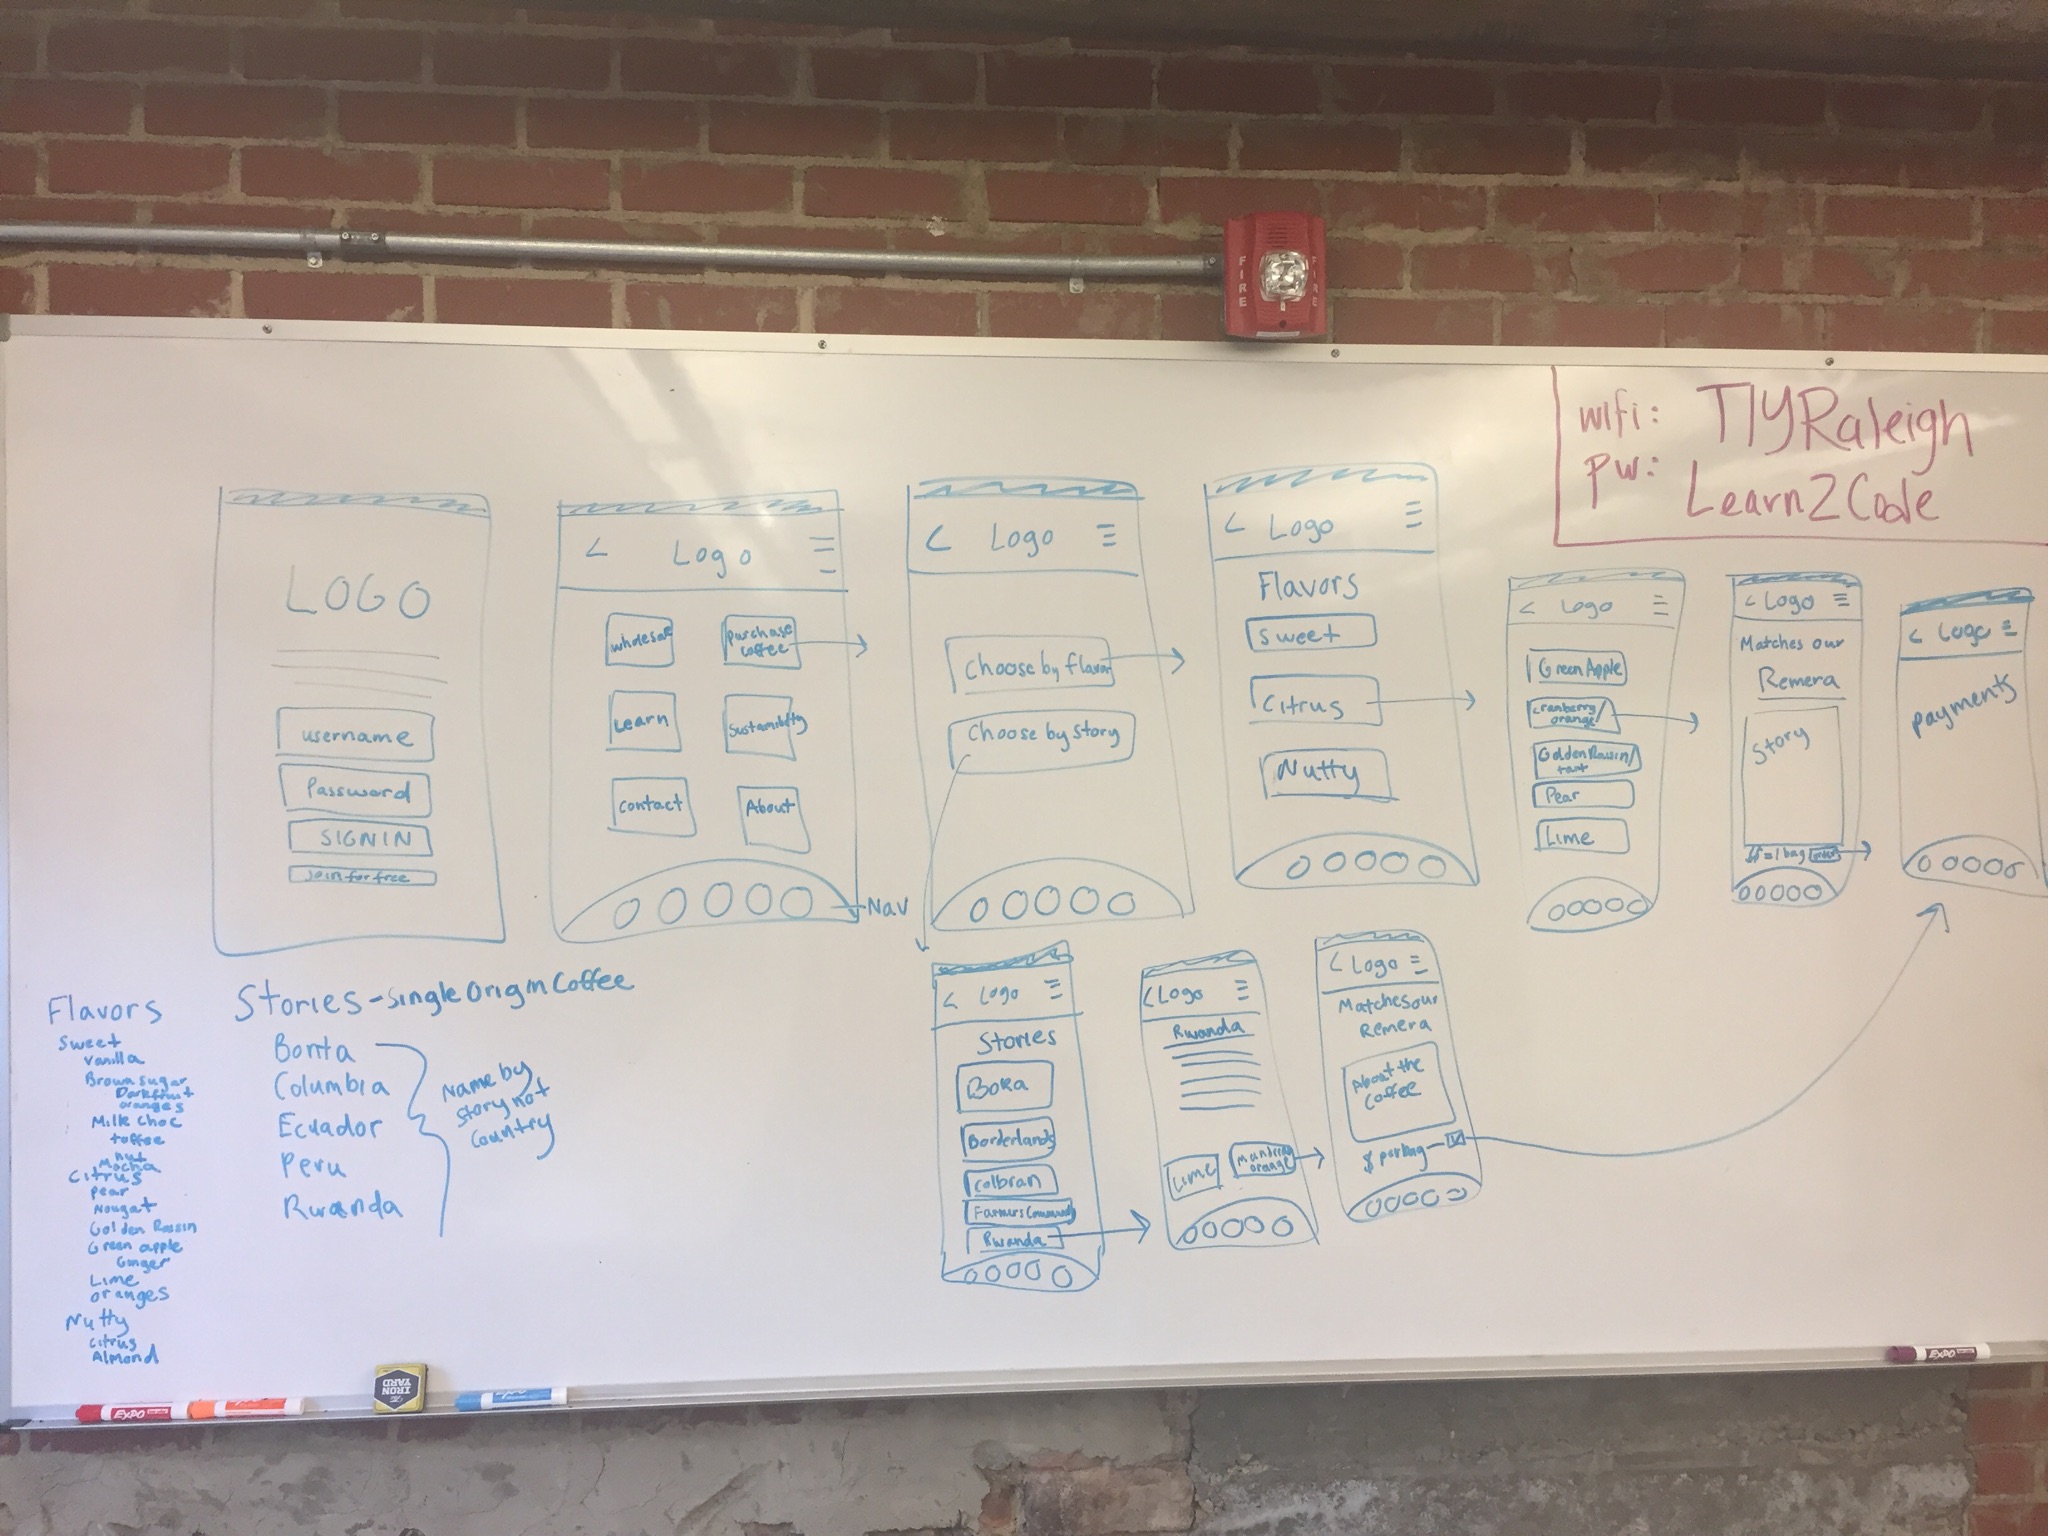 FIRE
FIRE
wifi: TIYRaleigh
pw: Learn2Code
LOGO
username
Password
SIGN IN
Join for free
< Logo
wholesale
purchase
coffee
Learn
Sustainability
contact
About
Nav
< Logo
Choose by flavor
Choose by Story
< Logo
Flavors
Sweet
Citrus
Nutty
< Logo
Green Apple
Cranberry/
orange
Golden Raisin/
tart
Pear
Lime
< Logo
Matches our
Remera
Story
= 1 bag
< Logo
payments
< Logo
Stories
Boka
Borderlands
Colbran
Rwanda
< Logo
Rwanda
Lime
orange
< Logo
Matches our
Remera
About the
coffee
$ per bag
Flavors
Sweet
Vanilla
Brown sugar
oranges
Milk choc
toffee
nut
Mocha
Citrus
pear
Nougat
Golden Raisin
Green apple
Ginger
Lime
oranges
Nutty
citrus
Almond
Stories - Single Origin Coffee
Columbia
Ecuador
Peru
Rwanda
Name by
story not
Country
EXPO
IRON
YARD
EXPO